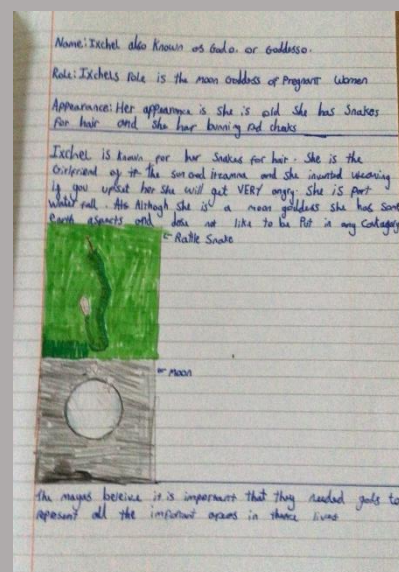 Name: Ixchel also known as Godo. or Goddesso.
Role: Ixchels role is the moon Goddess of Pregnant women
Appearance: Her appearance is she is old she has Snakes
for hair and she har bunning red cheaks
Ixchel is known for her Snakes for hair. She is the
Girlfriend of the sun and itzamna and she invented weaving
if you upset her she will get VERY angry. She is part
water fall. Although she is a moon goddess she has some
earth aspects and dose not like to be Put in any Contagory
Rattle Snake
moon
The mayas beleive it is important that they needed gods to
represent all the important in there lives